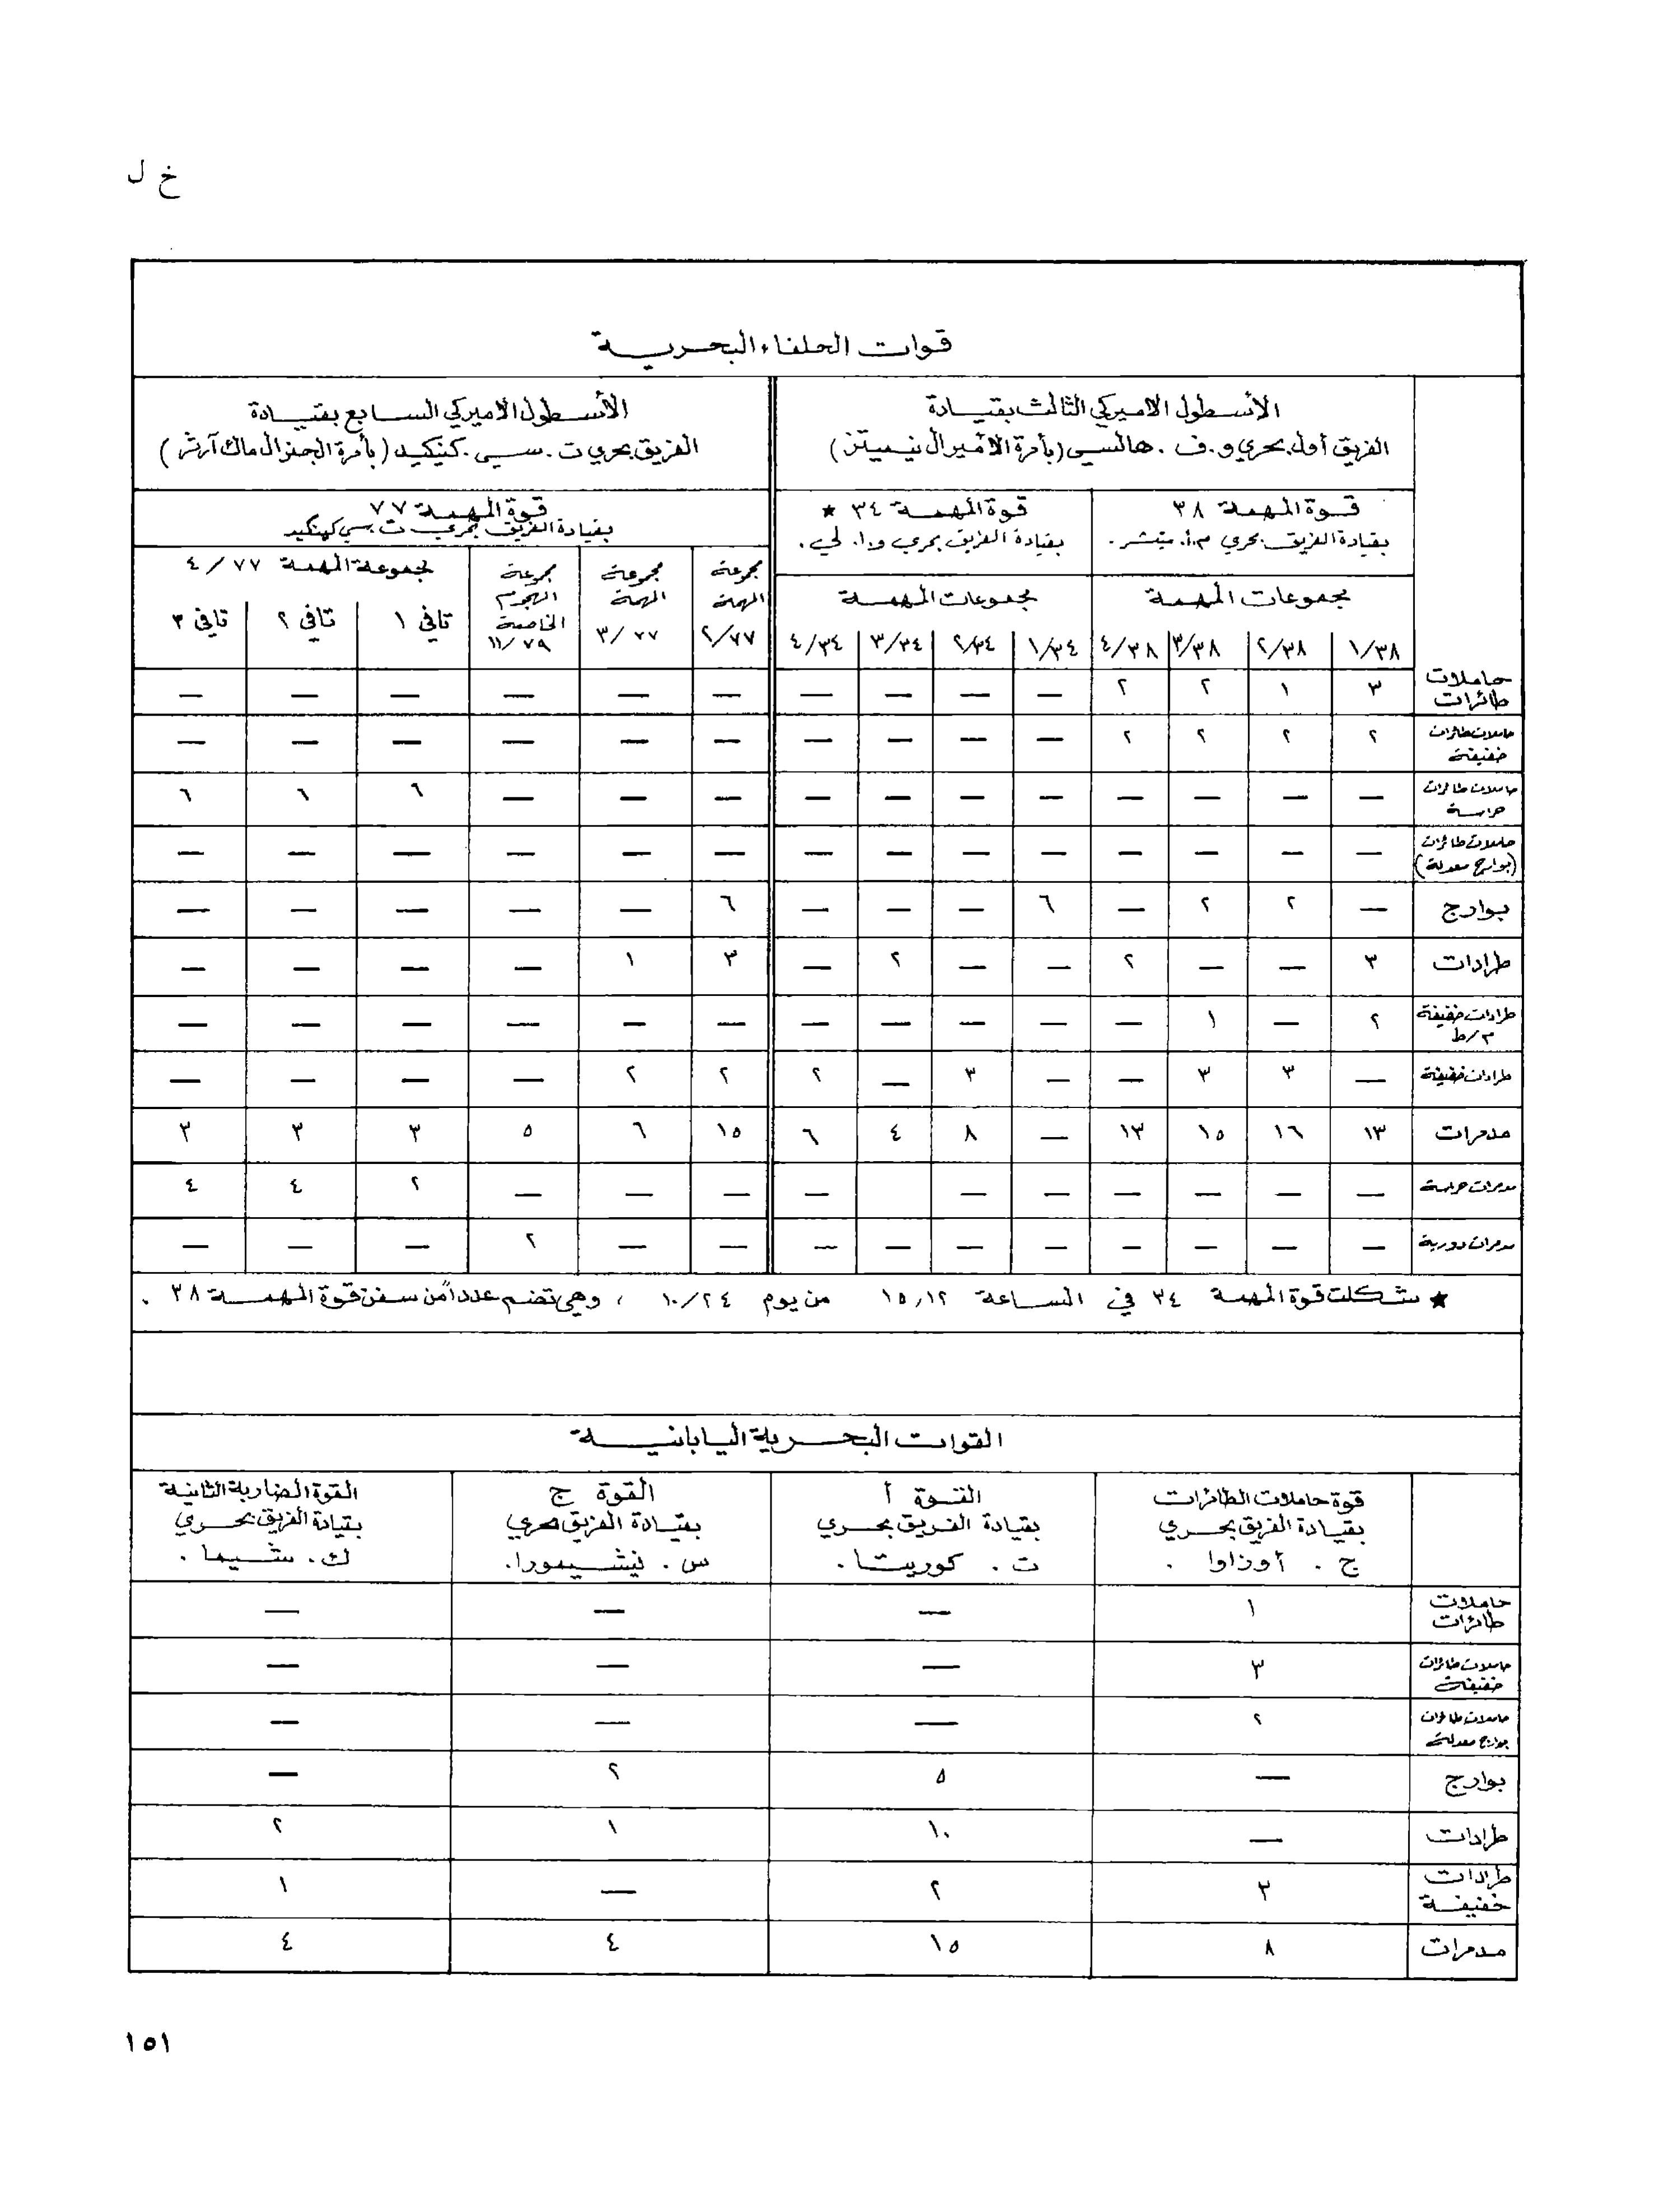 خ ل
قوات الحلفاء البحرية
الأسطول الاميركي الثالث بقيادة
الفريق أول بحري و. ف. هالسي (بأمرة الأميرال نيميتز)
الأسطول الاميركي السابع بقيادة
الفريق بحري ت. سي. كنكيد (بأمرة الجنرال ماك آرثر)
قوة المهمة ٣٨
بقيادة الفريق بحري م.أ. ميتشر.
قوة المهمة ٣٤ ★
بقيادة الفريق بحري و.ا. لي.
قوة المهمة ٧٧
بقيادة الفريق بحري ت. سي كينكيد
مجموعات المهمة
مجموعات المهمة
مجموعة المهمة ٢/٧٧
مجموعة المهمة ٣/٧٧
مجموعة الهجوم الخاصة ١١/٧٩
مجموعة المهمة ٤/٧٧
١/٣٨ ٢/٣٨ ٣/٣٨ ٤/٣٨ ١/٣٤ ٢/٣٤ ٣/٣٤ ٤/٣٤ تافي ١ تافي ٢ تافي ٣
حاملات طائرات ٣ ١ ٢ ٢ — — — — — — — — — —
حاملات طائرات خفيفة ٢ ٢ ٢ ٢ — — — — — — — — — —
حاملات طائرات حراسة — — — — — — — — — — — ٦ ٦ ٦
حاملات طائرات (بوارج معدلة) — — — — — — — — — — — — — —
بوارج — ٢ ٢ — ٦ — — — ٦ — — — — —
طرادات ٣ — — ٢ — — ٢ — ٣ ١ — — — —
طرادات خفيفة م/ط ٢ — ١ — — — — — — — — — — —
طرادات خفيفة — ٣ ٣ — — ٣ — ٢ ٢ ٢ — — — —
مدمرات ١٣ ١٦ ١٥ ١٣ — ٨ ٤ ٦ ١٥ ٦ ٥ ٣ ٣ ٣
مدمرات حراسة — — — — — — — — — — ٢ ٤ ٤
مدمرات دورية — — — — — — — — — — ٢ — — —
★ شكلت قوة المهمة ٣٤ في الساعة ١٥,١٢ من يوم ١٠/٢٤ ، وهي تضم عدداً من سفن قوة المهمة ٣٨ .
القوات البحرية اليابانية
قوة حاملات الطائرات
بقيادة الفريق بحري
ج . أوزاوا .
القوة أ
بقيادة الفريق بحري
ت . كوريتا .
القوة ج
بقيادة الفريق بحري
س . نيشيمورا.
القوة الضاربة الثانية
بقيادة الفريق بحري
ك . شيما .
حاملات طائرات ١ — — —
حاملات طائرات خفيفة ٣ — — —
حاملات طائرات بوارج معدلة ٢ — — —
بوارج — ٥ ٢ —
طرادات — ١٠ ١ ٢
طرادات خفيفة ٣ ٢ — ١
مدمرات ٨ ١٥ ٤ ٤
١٥١